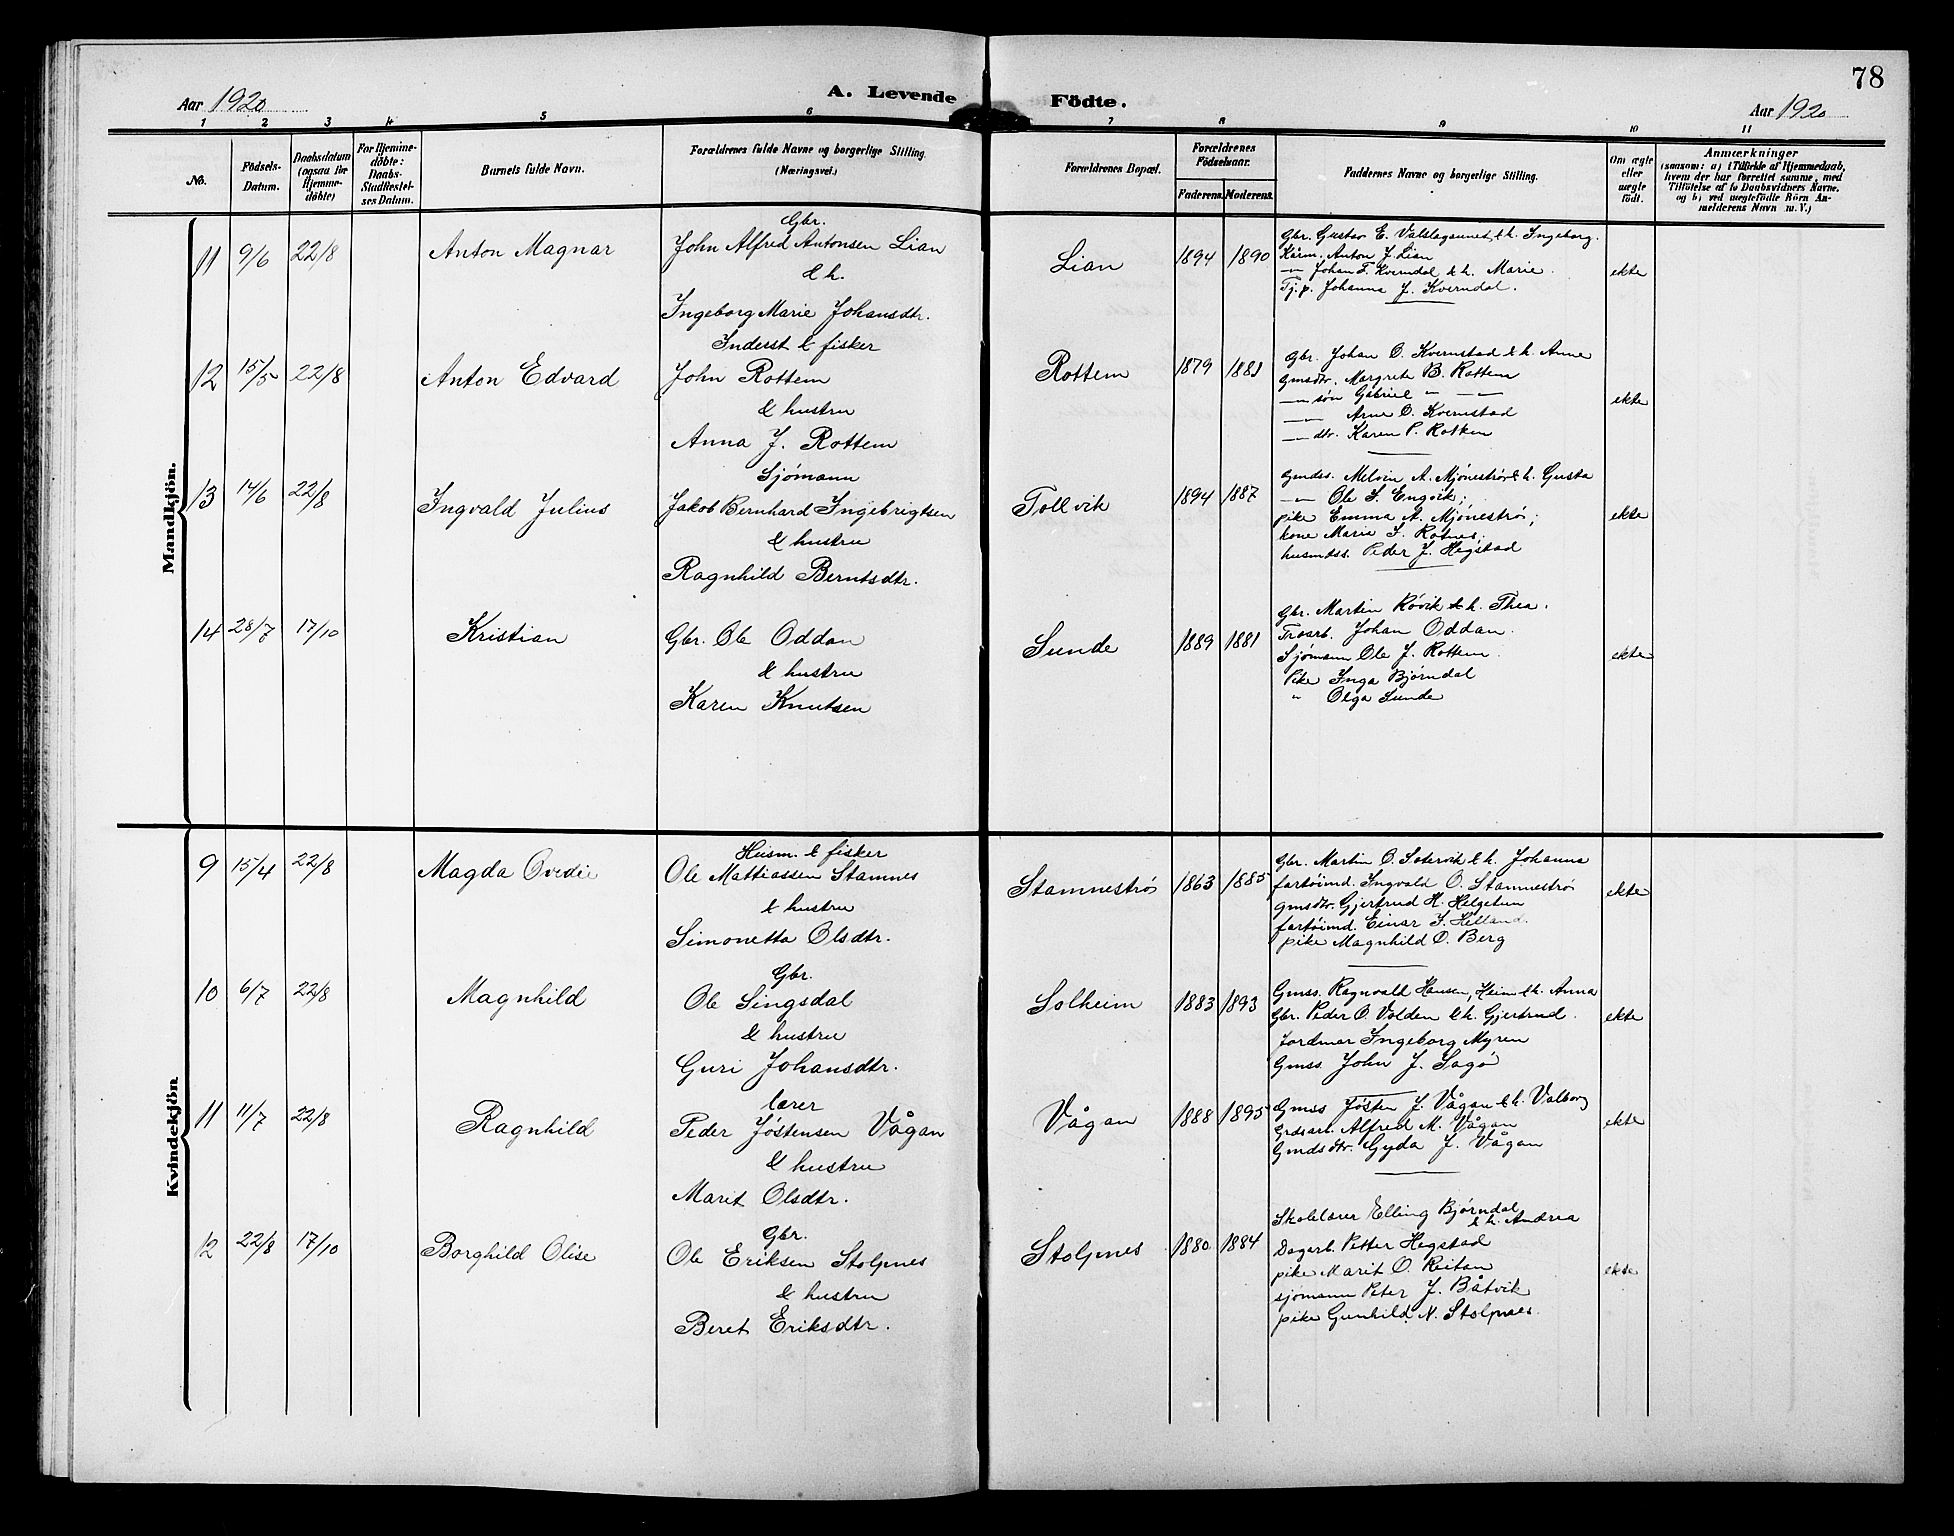 78
Aar 1920
A. Levende Födte.
Aar 1920
1 2 3 4 5 6 7 8 9 10 11
No.
Födsels-Datum.
Daabsdatum (ogsaa for Hjemme-döbte)
For Hjemme-döbte: Daabs-Stadfæstel-ses Datum.
Barnets fulde Navn.
Forældrenes fulde Navne og borgerlige Stilling. (Næringsvei.)
Forældrenes Bopæl.
Forældrenes Födselsaar.
Faderens. Moderens.
Faddernes Navne og borgerlige Stilling.
Om ægte eller uægte födt.
Anmærkninger
(saasom: a) i Tilfælde af Hjemmedaab, hvem der har forrettet samme, med Tilföielse af to Daabsvidners Navne, og b) ved uægtefödte Börn An-melderens Navn m. V.)
Mandkjön.
11 9/6 22/8 Anton Magnar
Gbr.
John Alfred Antonsen Lian
& h.
Ingeborg Marie Johansdtr.
Lian 1894 1890
Gbr. Gustav E. Valslagunnet & h. Ingeborg.
Kårm. Anton J. Lian
— Johan F. Kverndal & h. Marie.
Tj.p. Johanna J. Kverndal.
ekte
12 15/5 22/8 Anton Edvard
Inderst & fisker
John Rottem
& hustru
Anna J. Rottem
Rottem 1879 1881
Gbr. Johan O. Kvernstad & h. Anne
gmsdtr. Margrete B. Rottem
— søn Gabriel — —
— Arne O. Kvernstad
— dtr. Karen P. Rottem
ekte
13 14/6 22/8 Ingvald Julius
Sjømann
Jakob Bernhard Ingebrigtsen
& hustru
Ragnhild Berntsdtr.
Tollvik 1894 1887
Gmdss. Melvin A. Mjønestrø & h. Gusta
— Ole S. Engvik;
pike Emma A. Mjønestrø;
kone Marie S. Rotnes;
husmdss. Peder J. Hegstad
ekte
14 28/7 17/10 Kristian
Gbr. Ole Oddan
& hustru
Karen Knutsen
Sunde 1889 1881
Gbr. Martin Røvik & h. Thea.
Troarb. Johan Oddan.
Sjømann Ole J. Rottem.
Pike Inga Bjørndal
" Olga Sunde
ekte
Kvindekjön
9 15/4 22/8 Magda Ovedie
Husm. & fisker
Ole Mattiassen Stamnes
& hustru
Simonetta Olsdtr.
Stamnestrø 1863 1885
Gbr. Martin O. Sätervik & h. Johanna
fartøimd. Ingvald O. Stamnestrø
gmsdtr. Gjertrud H. Helgetun
fartøimd. Einar J. Helland.
pike Magnhild O. Berg
ekte
10 6/7 22/8 Magnhild
Gbr.
Ole Singsdal
& hustru
Guri Johansdtr.
Solheim 1883 1893
Gmss. Ragnvald Hansen, Heim & h. Anna
Gbr. Peder O. Volden & h. Gjertrud.
Jordmor Ingeborg Myren
Gmss. John J. Sagø
ekte
11 11/7 22/8 Ragnhild
lærer
Peder Jøstensen Vågan
& hustru
Marit Olsdtr.
Vågan 1888 1895
Gmss Jøsten J. Vågan & h. Valborg
Grdsarb. Alfred M. Vågan
Gmdsdtr. Gyda J. Vågan
ekte
12 22/8 17/10 Borghild Olise
Gbr.
Ole Eriksen Stolpnes
& hustru
Beret Eriksdtr.
Stolpnes 1880 1884
Skolelærer Elling Bjørndal
& h. Andrea
Dagarb. Petter Hegstad
pike Marit O. Reitan
sjømann Peter J. Båtvik
pike Gunhild N. Stolpnes.
ekte